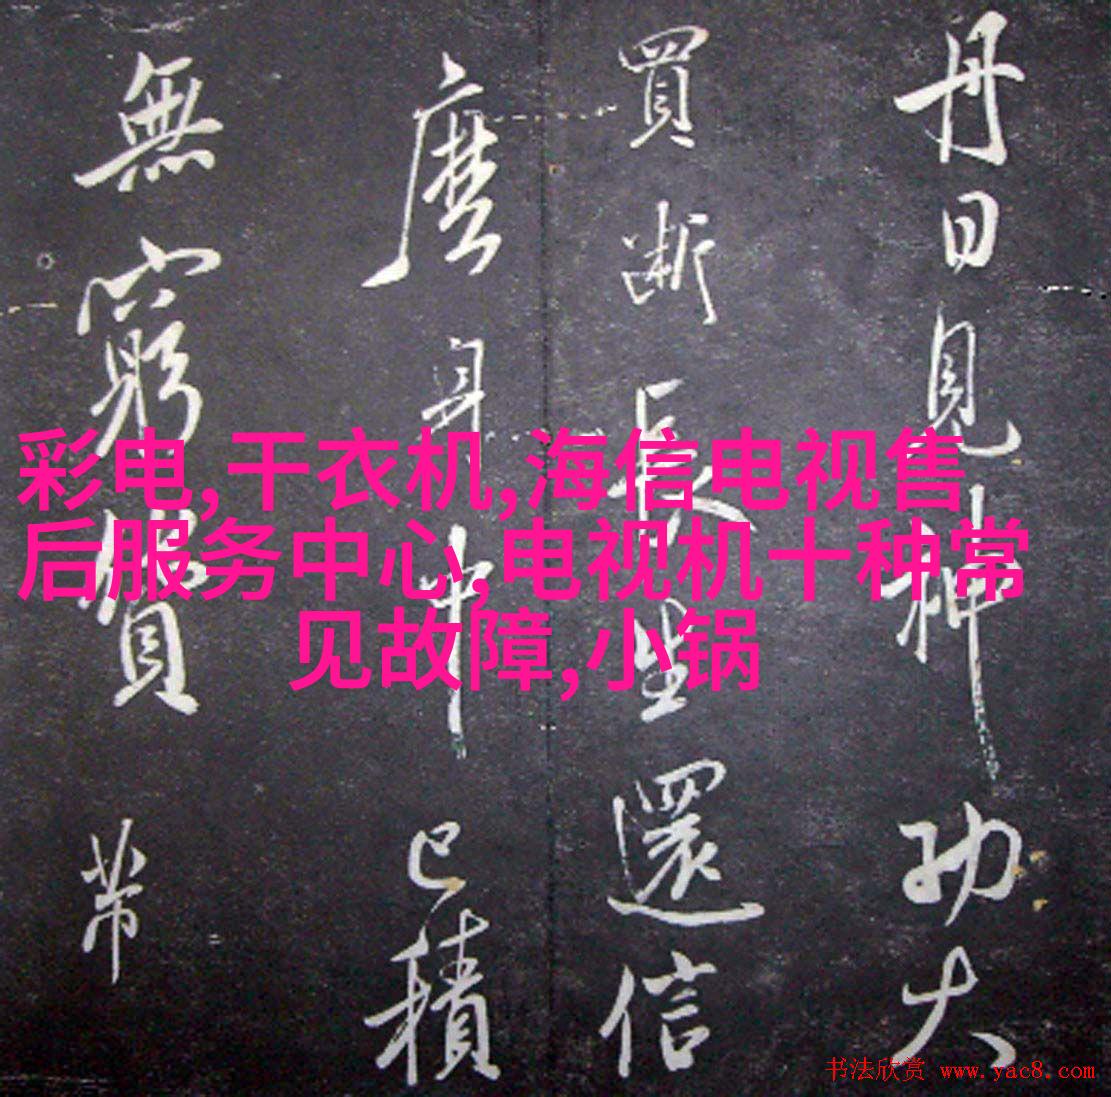 丹日見神功大
買斷長生還信
麽身中已積
無窮貲带
彩电,干衣机,海信电视售
后服务中心,电视机十种常
见故障,小锅
书法欣赏 www.yac8.com